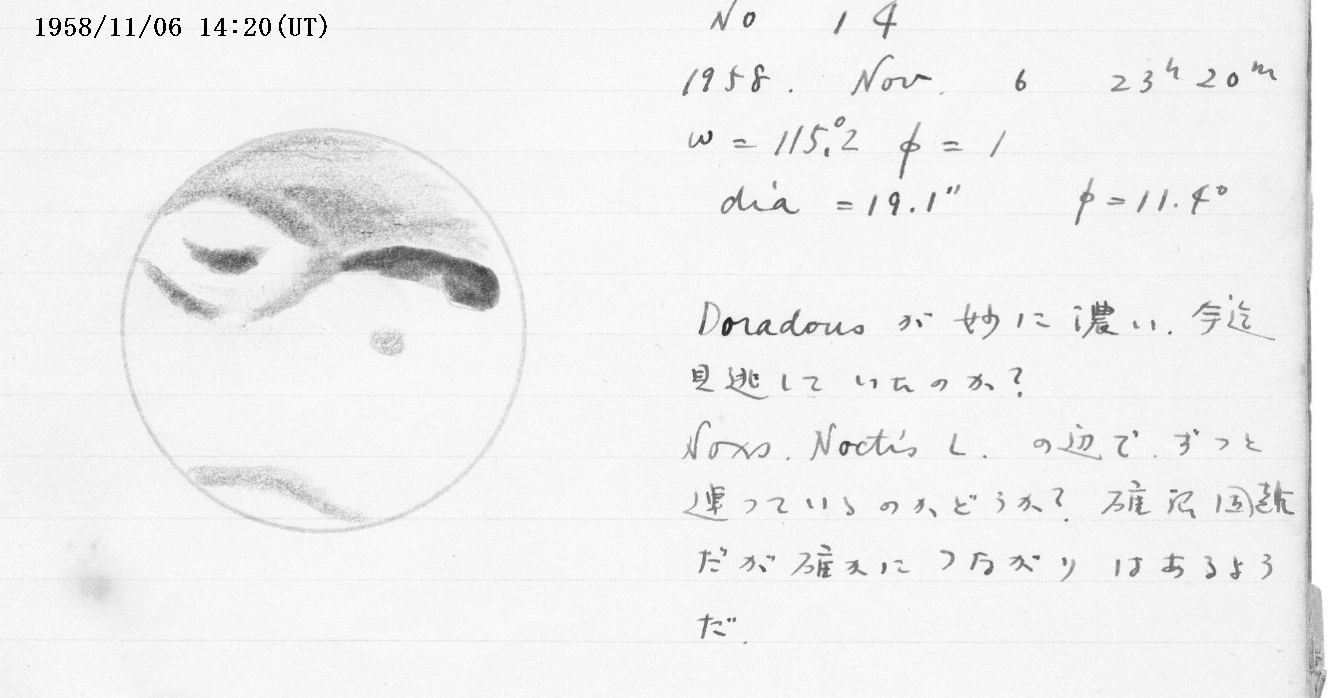 1958/11/06 14:20(UT)
No 14
1958. Nov. 6 23h 20m
ω = 115.°2 φ = 1
dia = 19.1" φ = 11.4°
Doradous が妙に濃い. 今迄
見逃していたのか?
Noxs. Noctis L. の辺で.ずっと
連っているのかどうか? 確認困難
だが確かにつながりはあるよう
だ.